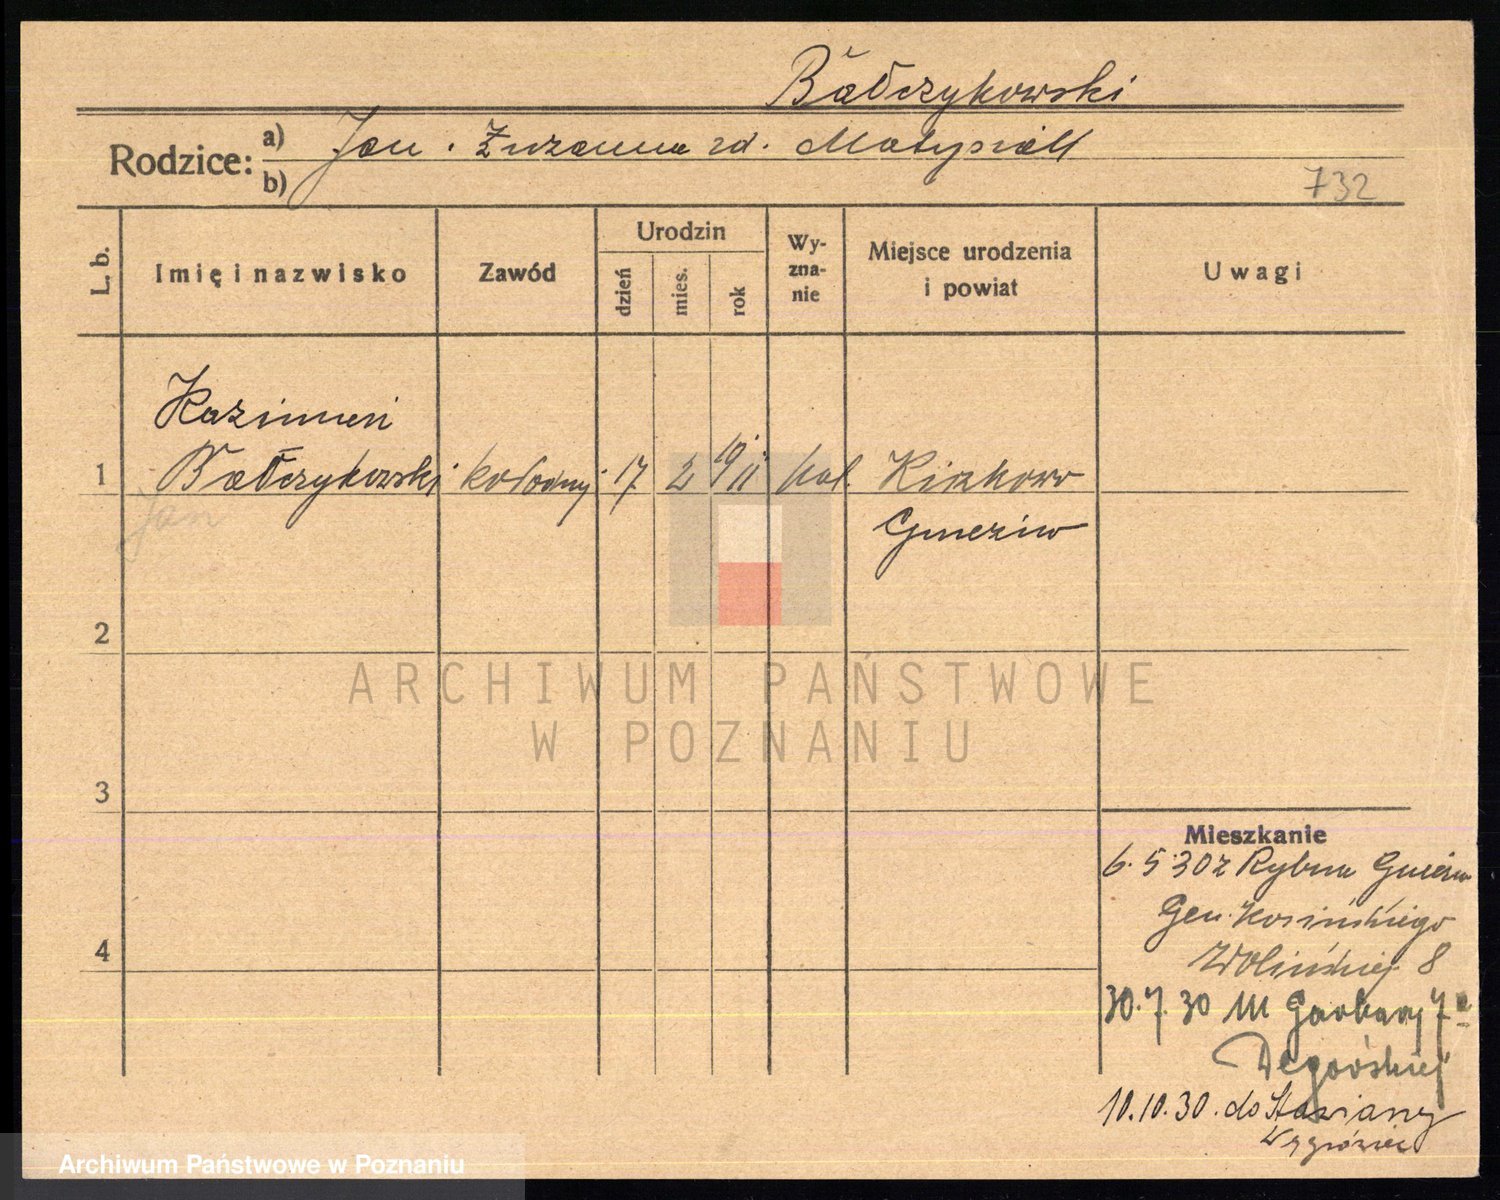 Bałczykowski
Rodzice: a) Jan . Zuzanna zd. Matysiak
b)
732
L. b. Imię i nazwisko Zawód Urodzin dzień mies. rok Wyznanie Miejsce urodzenia i powiat Uwagi
Kazimierz
1 Bałczykowski kołodziej 17 2 1911 kat. Kiszkowo
Jan
Gniezno
2
ARCHIWUM PAŃSTWOWE
W POZNANIU
3
Mieszkanie
6. 5. 30 z Rybna Gniezno
Gen. Kosińskiego
4
Wolińskiej 8
30. 7. 30 Garbary 7
10. 10. 30. do
Archiwum Państwowe w Poznaniu